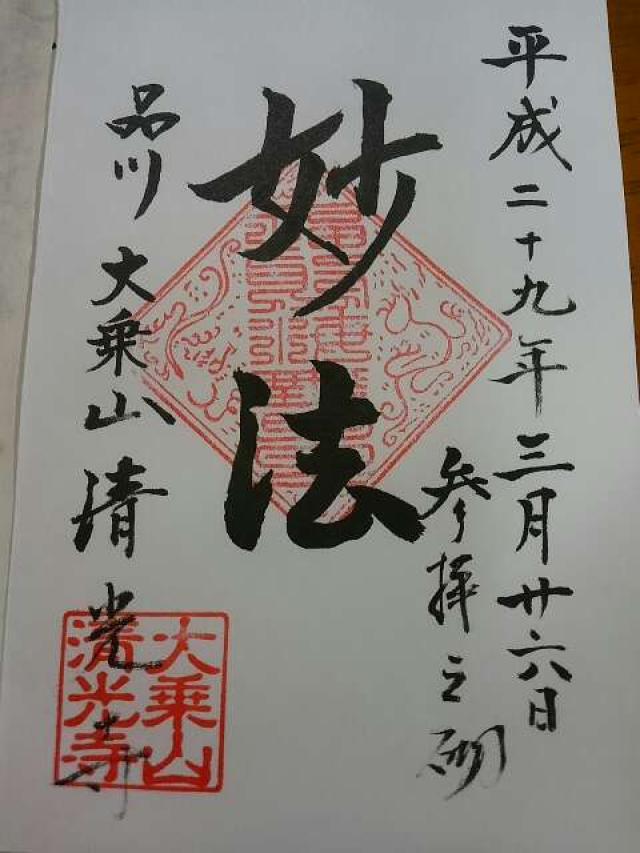 平成二十九年三月廿六日
参拝之砌
妙法
品川 大乗山 清光寺
大乗山
清光寺